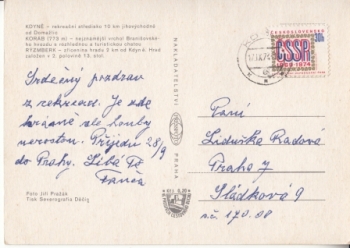 KDYNĚ – rekreační středisko 10 km jihovýchodně
od Domažlic
KORÁB (773 m) – nejznámější vrchol Branžovského
hvozdu s rozhlednou a turistickou chatou
RÝZMBERK – zřícenina hradu 2 km od Kdyně. Hrad
založen v 2. polovině 13. stol.
Srdečný pozdrav
z rekreace. Je zde
krásně ale houby
nerostou. Přijedu 28/9
do Prahy. Líbá Tě
Fanča
Foto Jiří Pražák
Tisk Severografia Děčín
NAKLADATELSTVÍ
PRAHA
ČESKOSLOVENSKO
30h
ČSSR
Paní
Liduška Radová
Praha 7
Sládkova 9
170.08